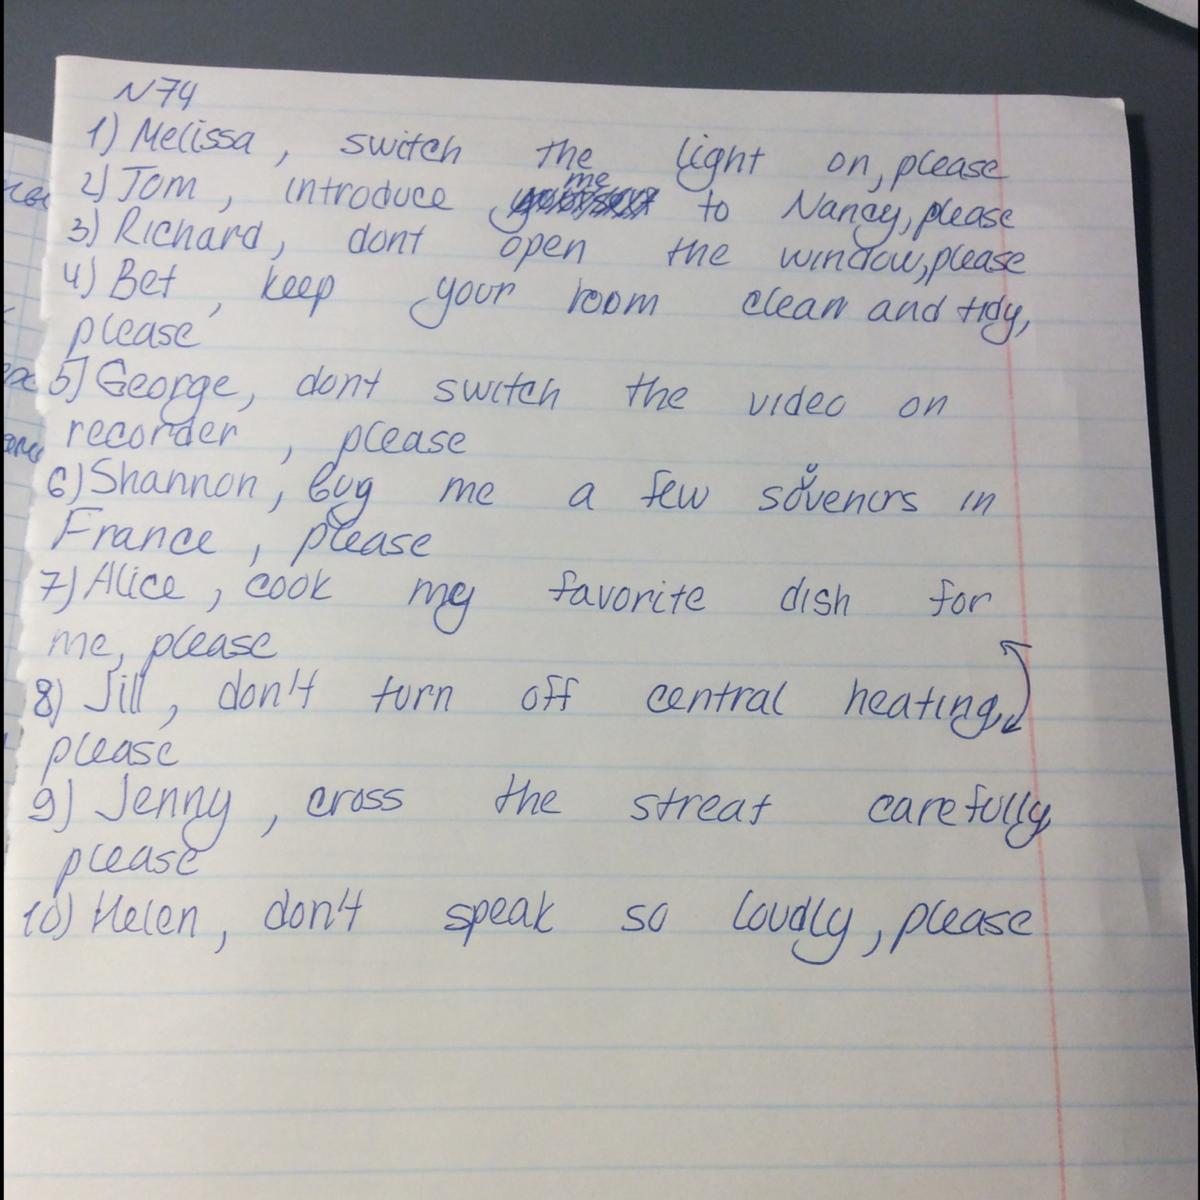 N74
1) Melissa, switch the light on, please
2) Tom, introduce me to Nancy, please
3) Richard, dont open the window, please
4) Bet, keep your room clean and tidy,
please
5) George, dont switch the video on
recorder, please
6) Shannon, bug me a few sovenirs in
France, please
7) Alice, cook my favorite dish for
me, please
8) Jill, don't turn off central heating,
please
9) Jenny, cross the streat carefully,
please
10) Helen, don't speak so loudly, please